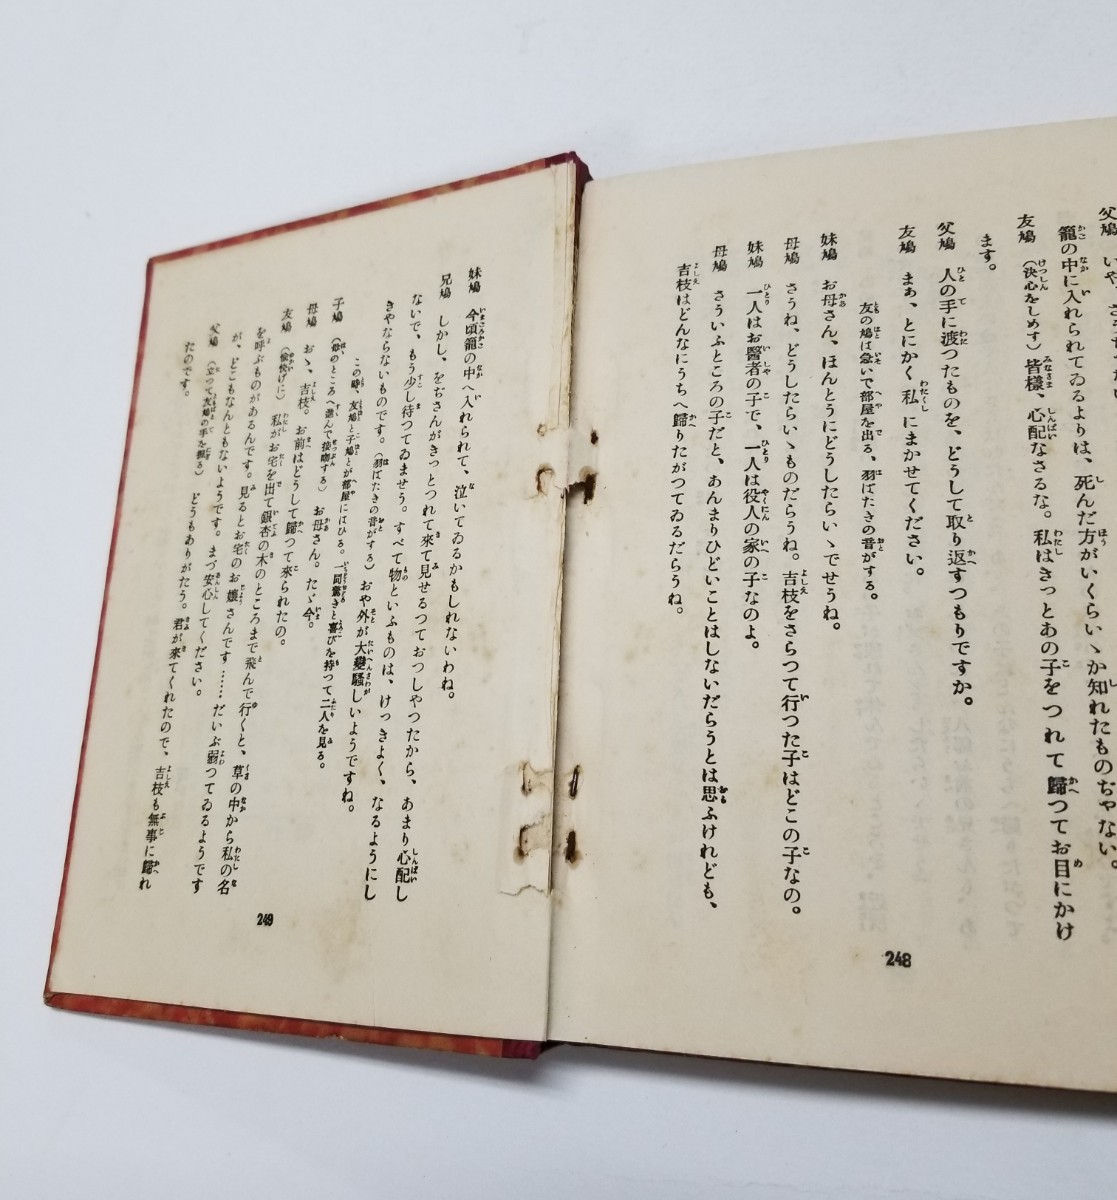 父鳩
籠の中に入れられてゐるよりは、死んだ方がいくらいゝか知れたものぢやない。
友鳩 (決心をしめす) 皆様、心配なさるな。私はきっとあの子をつれて歸つてお目にかけ
ます。
父鳩 人の手に渡つたものを、どうして取り返すつもりですか。
友鳩 まぁ、とにかく私にまかせてください。
友の鳩は急いで部屋を出る、羽ばたきの音がする。
妹鳩 お母さん、ほんとうにどうしたらいゝでせうね。
母鳩 さうね、どうしたらいゝものだらうね。吉枝をさらつて行つた子はどこの子なの。
妹鳩 一人はお醫者の子で、一人は役人の家の子なのよ。
母鳩 さういふところの子だと、あんまりひどいことはしないだらうとは思ふけれども、
吉枝はどんなにうちへ歸りたがつてゐるだらうね。
248
妹鳩 今頃籠の中へ入れられて、泣いてゐるかもしれないわね。
兄鳩 しかし、をぢさんがきっとつれて來て見せるつておつしやつたから、あまり心配し
ないで、もう少し待つてゐませう。すべて物といふものは、けっきよく、なるようにし
きやならないものです。(羽ばたきの音がする)おや外が大變騷しいようですね。
この時、友鳩と子鳩とが部屋にはひる。一同驚きと喜びを持つて二人を見る。
子鳩 のところへ進んで接吻する) お母さん。たゞ今。
母鳩 おゝ、吉枝。お前はどうして歸つて來られたの。
友鳩 (愉快げに) 私がお宅を出て銀杏の木のところまで飛んで行くと、草の中から私の名
を呼ぶものがあるんです。見るとお宅のお孃さんです……だいぶ弱つてゐるようです
が、どこもなんともないようです。まづ安心してください。
父鳩 (立つて友鳩の手を握る) どうもありがたう。君が來てくれたので、吉枝も無事に歸れ
たのです。
249